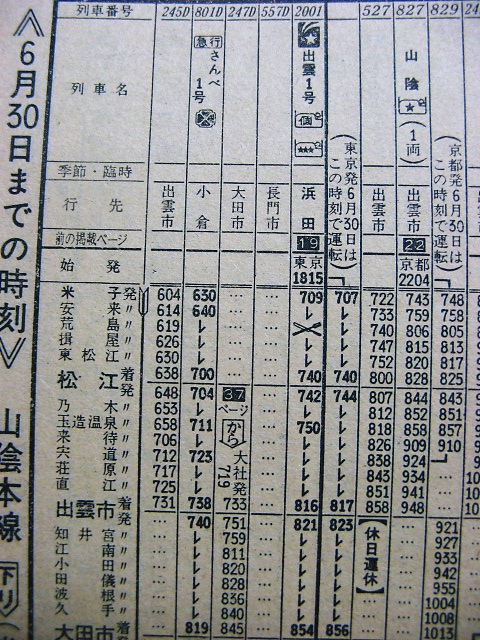 ≪6月30日までの時刻≫ 山陰本線 下り
列車番号 245D 801D 247D 557D 2001 527 827 829
列車名 急行 さんべ1号 出雲1号 山陰
(東京発6月30日はこの時刻で運転)
(1両)
(京都発6月30日はこの時刻で運転)
季節・臨時
行先 出雲市 小倉 大田市 長門市 浜田 出雲市 出雲市
前の掲載ページ 19 22
始発 東京 1815 京都 2204
米子発 604 630 … … 709 707 722 743 748
安来〃 614 640 … … 733 759 758
荒島〃 619 … … 740 806 805
揖屋〃 626 … … 747 815 813
東松江〃 630 … … 752 820 817
松江着 638 700 … … 740 740 800 828 825
発 648 704 37ページから … 742 744 807 844 843
乃木〃 653 … 812 852 851
玉造温泉〃 658 711 … 750 818 858 857
来待〃 706 … 826 909 910
宍道〃 712 723 大社発719 … 838 924
荘原〃 717 … 843 934
直江〃 725 … 851 941
出雲市着 731 738 733 … 816 817 858 948
発 … 740 751 … 821 823 【休日運休】 … 921
知井宮〃 … 759 … … 927
江南〃 … 811 … … 933
小田〃 … 820 … … 942
田儀〃 … 828 … … 955
波根〃 … 836 … … 1004
久手〃 … 840 … … 1008
大田市着 … 819 845 … 854 856 … 1013